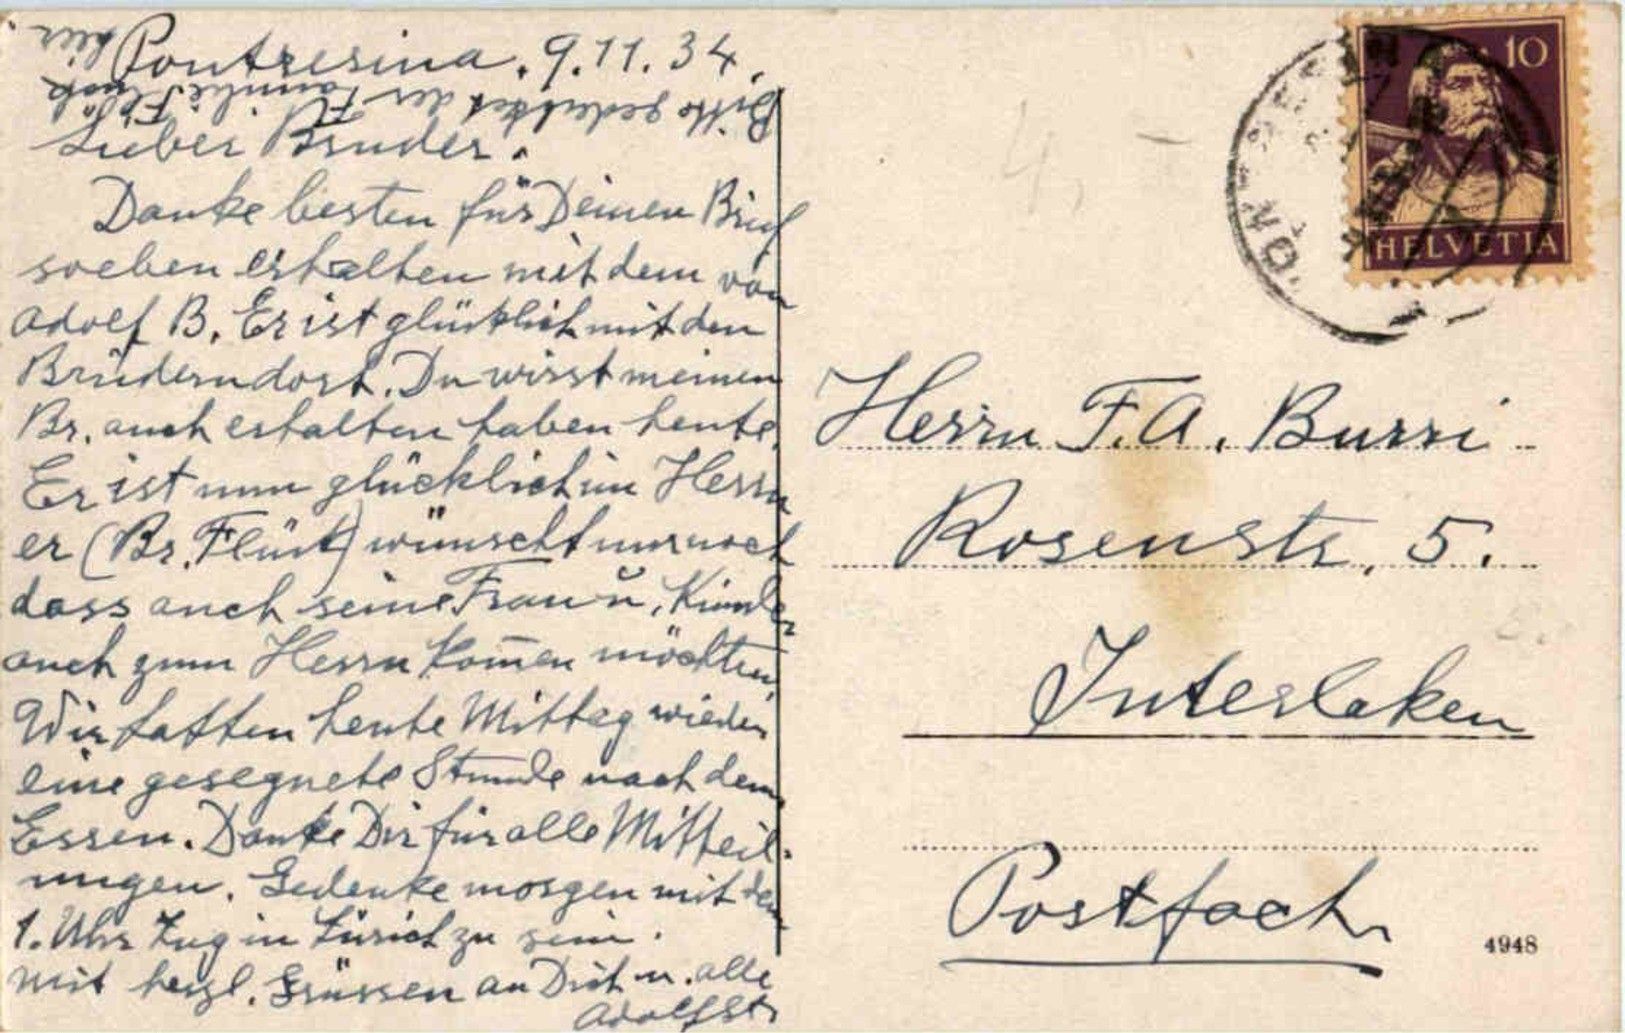 Pontresina. 9.11.34.
Bitte gedenket der Familie Flück
hier.
Lieber Bruder.
Danke besten für Deinen Brief
soeben erhalten mit dem von
Adolf B. Er ist glücklich mit den
Brüdern dort. Du wirst meinen
Br. auch erhalten haben heute.
Er ist nun glücklich im Herrn
er (Br. Flück) wünscht nur noch
dass auch seine Frau u. Kinder
auch zum Herrn kom̄en möchten.
Wir hatten heute Mittag wieder
eine gesegnete Stunde nach dem
Essen. Danke Dir für alle Mitteil-
ungen. Gedenke morgen mit dem
1. Uhr Zug in Zürich zu sein.
Mit herzl. Grüssen an Dich u. alle
Adolf
10
HELVETIA
Herrn F.A. Burri
Rosenstr. 5.
Interlaken
Postfach
4948